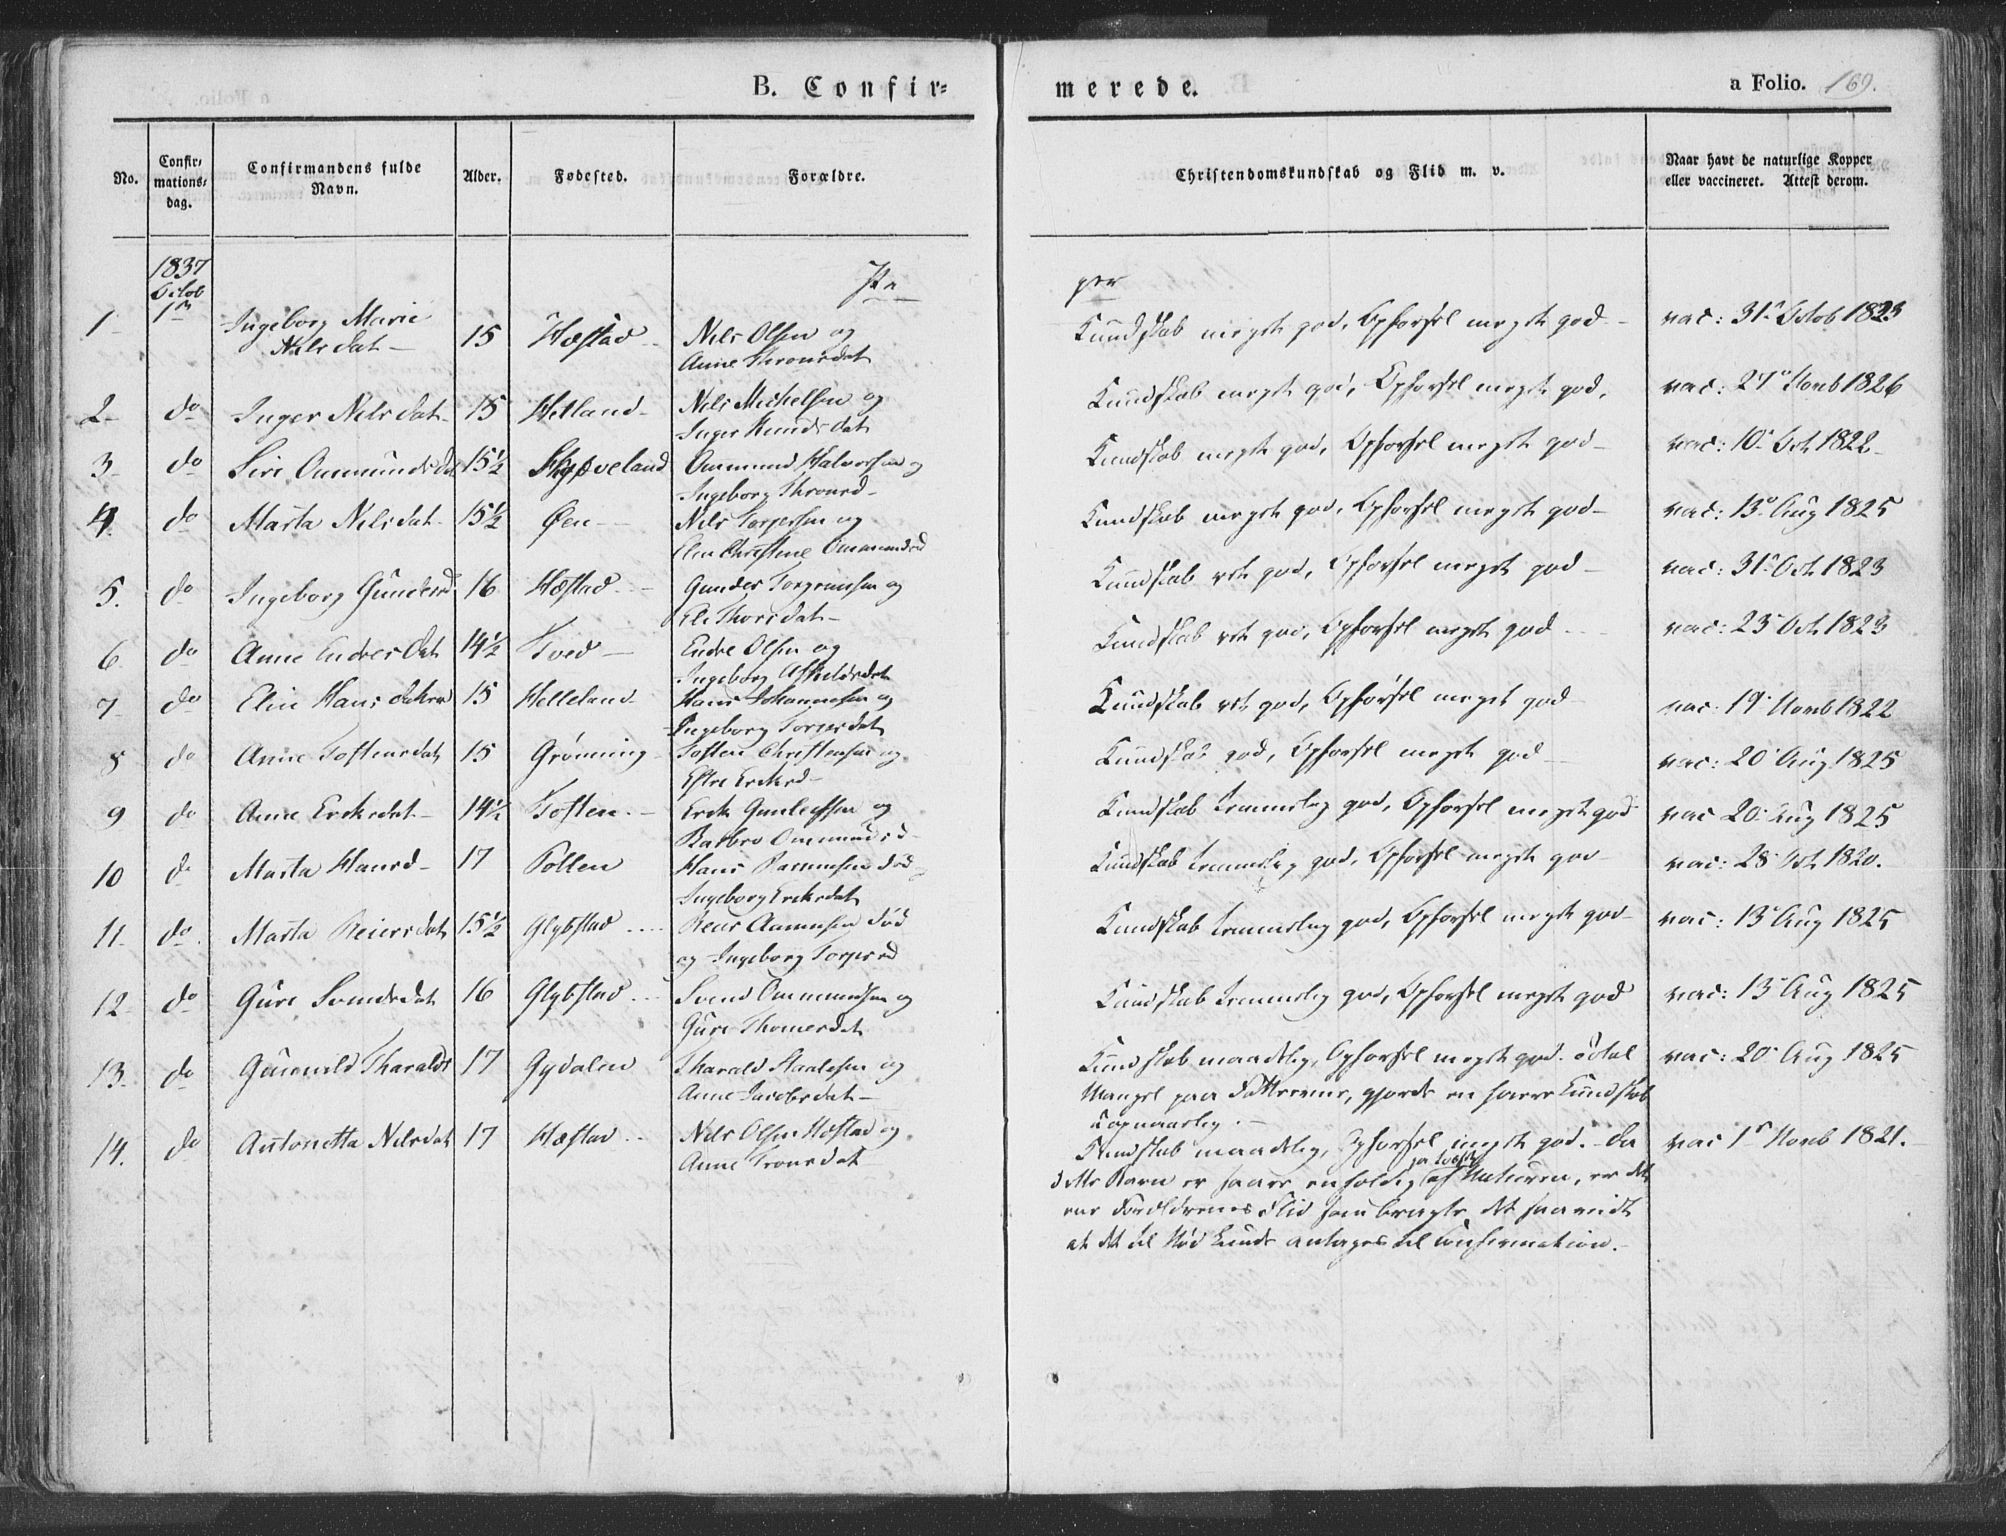 B. Confir=
merede.
a Folio. 169.
No.
Confir=
mations=
dag.
Confirmandens fulde
Navn.
Alder.
Fødested.
Forældre.
Christendomskundskab og Flid m. v.
Naar havt de naturlige Kopper
eller vaccineret. Attest derom.
1837
Octob
1
1 Ingeborg Marie
Nilsdat 15 Hæstad Nils Olsen og
Anne Thronsdat
Kundskab meget god, Opførsel meget god vac: 31 Octob 1823
2 do Inger Nilsdat 15 Hetland Nils Michelsen og
Inger Knudsdat
Kundskab meget god, Opførsel meget god, vac: 27 Novb 1826
3 do Siri Ommundsdat 15½ Skjæveland Ommund Halvorsen og
Ingeborg Thronsd
Kundskab meget god, Opførsel meget god vac: 10 Oct 1822
4. do Marta Nilsdat 15½ Øen Nils Torgersen og
Elen Christine Ommundsd
Kundskab meget god, Opførsel meget god vac: 13 Aug 1825
5. do Ingeborg Gundersd 16 Hæstad Gunder Torgrimsen og
Eli Thorsdat
Kundskab ret god, Opførsel meget god vac: 31 Oct 1823
6 do Anne Endresdat 14½ Tved Endre Olsen og
Ingeborg Asbieldsdat
Kundskab ret god, Opførsel meget god vac: 23 Oct 1823
7 do Elin Hans datter 15 Helleland Hans Johannesen og
Ingeborg Torgersdat
Kundskab ret god, Opførsel meget god vac: 19 Novb 1822
8 do Anne Tostensdat 15 Grønning Tosten Christensen og
Erichsd
Kundskab god, Opførsel meget god vac: 20 Aug 1825
9 do Anne Erichsdat 14½ Tosten Erich Gunlefsen og
Barbro Ommundsd
Kundskab temmelig god, Opførsel meget god vac 20 Aug 1825
10 do Marta Hansd 17 Pollen Hans Rasmusen død
Ingeborg Erichsdat
Kundskab temmelig god, Opførsel meget god vac: 28 Oct 1820.
11 do Marta Reiersdat 15½ Glybstad Reier Aamunsen død
og Ingeborg Torgersd
Kundskab temmelig god, Opførsel meget god vac: 13 Aug 1825
12 do Guri Svendsdat 16 Glybstad Svend Ommundsen og
Guri Thomesdat
Kundskab temmelig god, Opførsel meget god vac: 13 Aug 1825
13. do Gunnild Tharalds 17 Gydalen Tharald Staalesen og
Anne Jacobsdat
Kundskab maadelig, Opførsel meget god. vac: 20 Aug 1825
Mangel paa Fatteevne, gjorde en større Kundskab
14. do Antonetta Nilsdat 17 Hæstad Nils Olsen Hæstad og
Anne Tronsdat
Kundskab maadelig, Opførsel meget god. Da vac 1 Novb 1821.
dette Barn er saare enfoldig af Naturen, er det
Forældrenes Flid som bragte det saavidt
at det til Nød kunde antages til Confirmation.